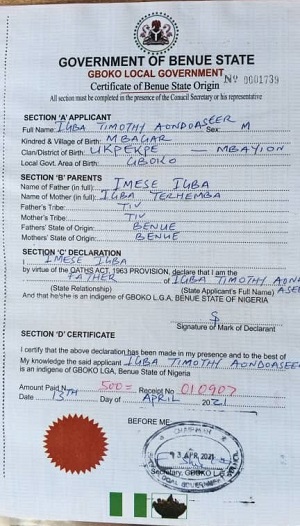 GOVERNMENT OF BENUE STATE
GBOKO LOCAL GOVERNMENT
Certificate of Benue State Origin
No 0001739
All section must be completed in the presence of the Council Secretary or his representative
SECTION 'A' APPLICANT
Full Name: IGBA TIMOTHY AONDOASEER Sex: M
Kindred & Village of Birth: MBAGAR
Clan/District of Birth: UKPEKPE — MBAYION
Local Govt. Area of Birth: GBOKO
SECTION 'B' PARENTS
Name of Father (in full): IMESE IGBA
Name of Mother (in full): IGBA TERHEMBA
Father's Tribe: TIV
Mother's Tribe: TIV
Father's State of Origin: BENUE
Mothers' State of Origin: BENUE
SECTION 'C' DECLARATION
I, IMESE IGBA
by virtue of the OATHS ACT, 1963 PROVISION, declare that I am the
FATHER of IGBA TIMOTHY AONDOASEER
(State Relationship) (State Applicant's Full Name)
And that he/she is an indigene of GBOKO L.G.A, BENUE STATE OF NIGERIA
Signature of Mark of Declarant
SECTION "D" CERTIFICATE
I certify that the above declaration has been made in my presence and to the best of
My knowledge the said applicant IGBA TIMOTHY AONDOASEER
is an indigene of GBOKO LGA, Benue State of Nigeria
Amount Paid N 500= Receipt No 010907
Date 13TH Day of APRIL 2021
BEFORE ME
13 APR 2021
Secretary, GBOKO L.G.A